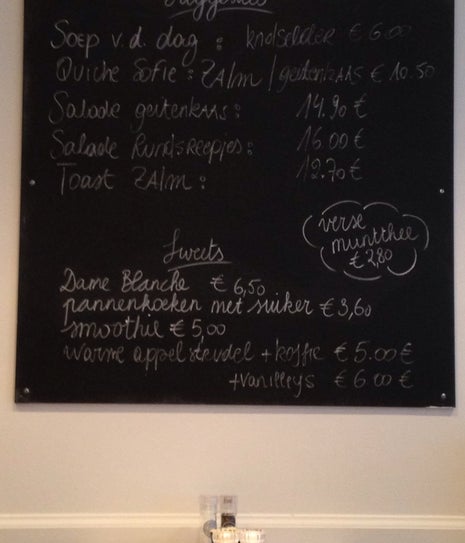 Suggesties
Soep v.d. dag : knolselder € 6.00
Quiche Sofie : ZALM / geitenkAAS € 10.50
Salade geitenkAAS : 14.90 €
Salade Rundsreepjes : 16.00 €
Toast ZALM : 12.70 €
verse
muntthee
€ 2,80
Sweets
Dame Blanche € 6,50
pannenkoeken met suiker € 3,60
smoothie € 5,00
warme appelstrudel + koffie € 5.00 €
+ vanilleijs € 6.00 €